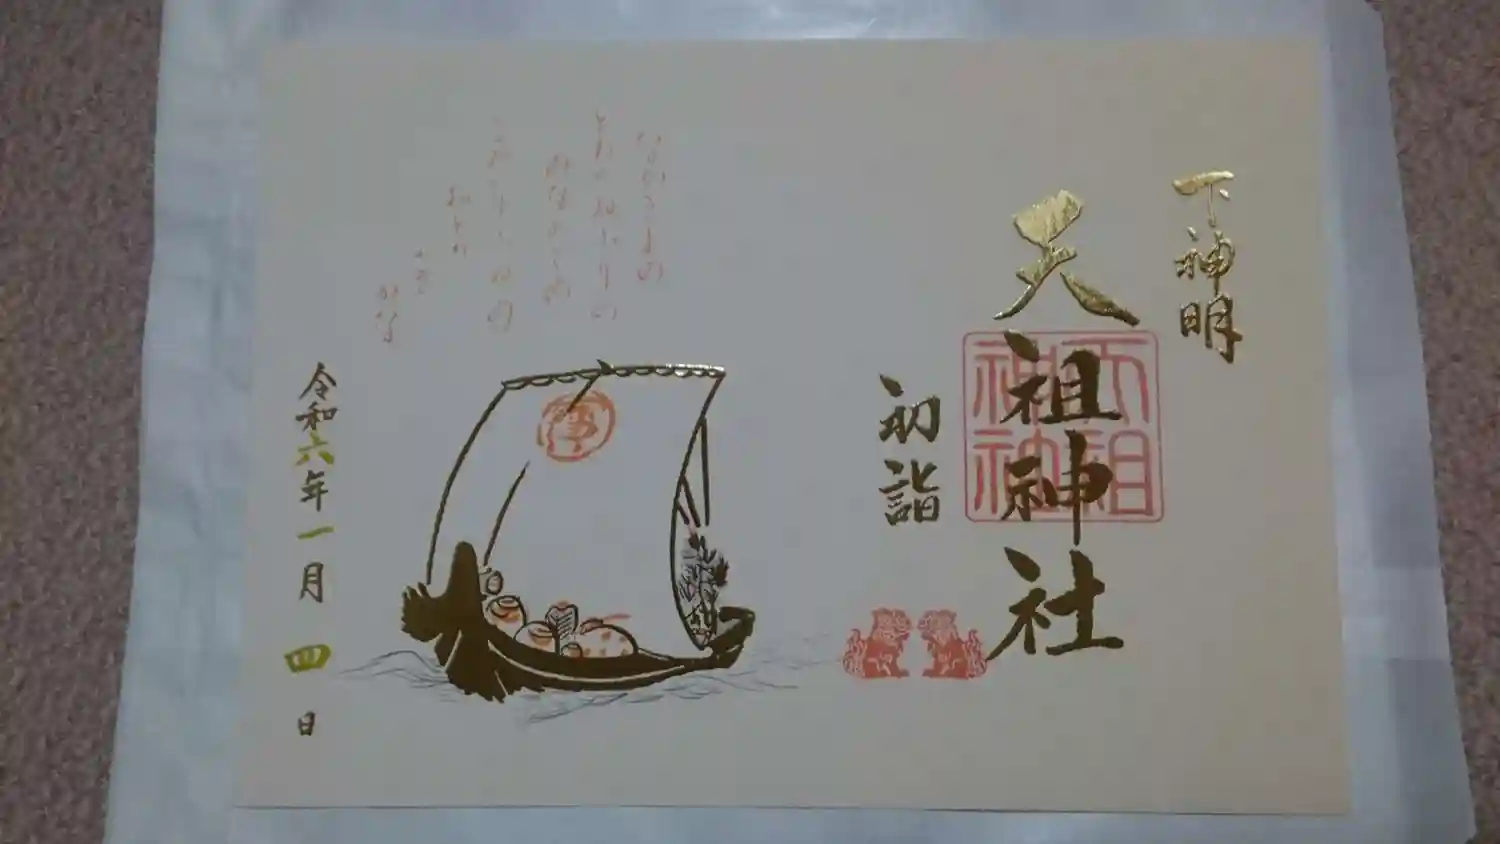 下神明
天祖神社
天祖神社
初詣
なかきよの
みなめさめ
なみのりふねの
おとの
よき
かな
令和六年一月四日